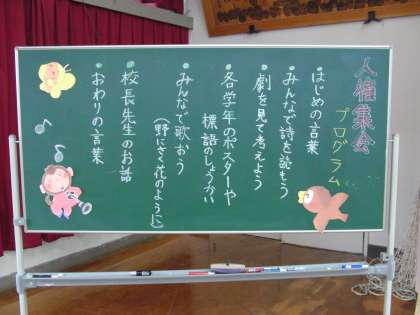 人権集会
プログラム
・はじめの言葉
・みんなで詩を読もう
・劇を見て考えよう
・各学年のポスターや
標語のしょうかい
・みんなで歌おう
(野にさく花のように)
・校長先生のお話
・おわりの言葉